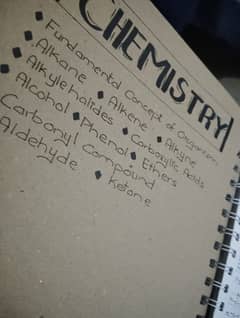 CHEMISTRY
Fundamental Concept of Organism
Alkane ◆ Alkene ◆ Alkyne
Alkylehalides ◆ Carboxylic Acids
Alcohol ◆ Phenol ◆ Ethers
Carbonyl Compound
Aldehyde ◆ Ketone